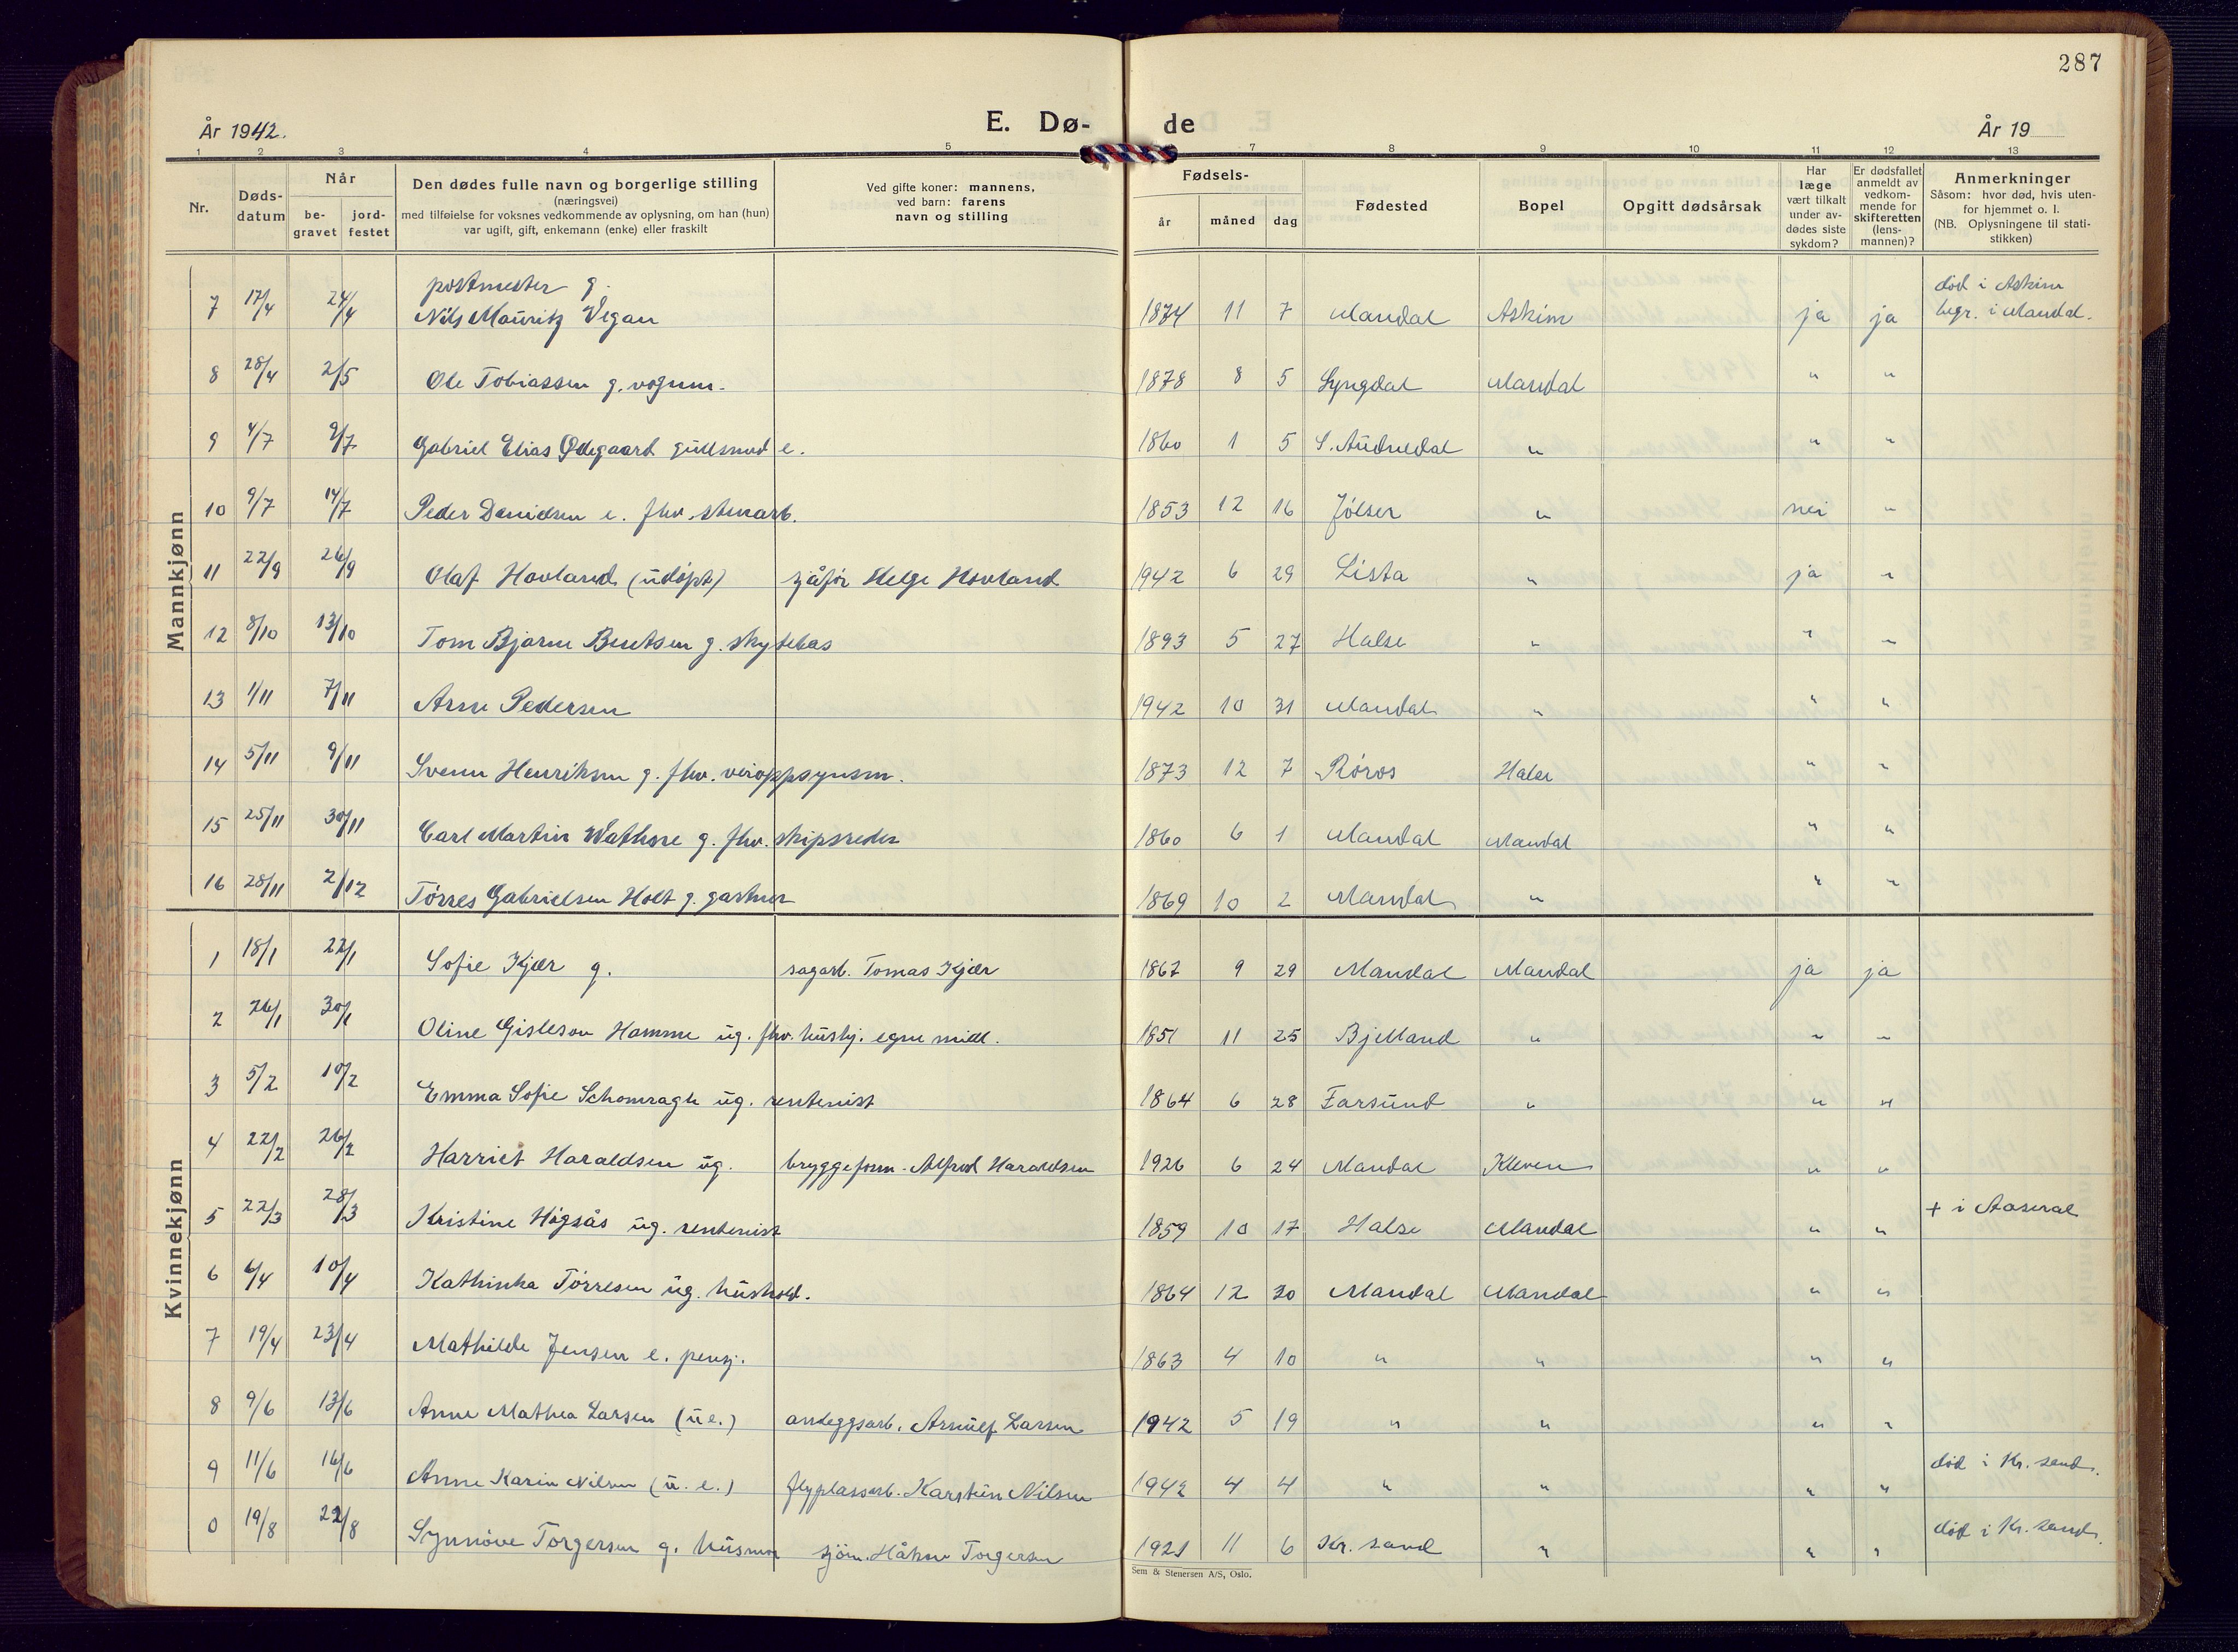 287
År 1942.
E. Dø- de
År 19
1 2 3 4 5 7 8 9 10 11 12 13
Nr.
Døds-
datum
Når
be-
gravet
jord-
festet
Den dødes fulle navn og borgerlige stilling
(næringsvei)
med tilføielse for voksnes vedkommende av oplysning, om han (hun)
var ugift, gift, enkemann (enke) eller fraskilt
Ved gifte koner: mannens,
ved barn: farens
navn og stilling
Fødsels-
år måned dag
Fødested
Bopel
Opgitt dødsårsak
Har
læge
vært tilkalt
under av-
dødes siste
sykdom?
Er dødsfallet
anmeldt av
vedkom-
mende for
skifteretten
(lens-
mannen)?
Anmerkninger
Såsom: hvor død, hvis uten-
for hjemmet o. l.
(NB. Oplysningene til stati-
stikken)
Mannkjønn
postmester g. død i Askim
7 17/4 24/4 Nils Mauritz Vegan 1874 11 7 Mandal Askim ja ja begr. i Mandal.
8 28/4 2/5 Ole Tobiassen g. vognm. 1878 8 5 Lyngdal Mandal " "
9 4/7 9/7 Gabriel Elias Ødegaard gullsmed e. 1860 1 5 S. Audnedal " " "
10 9/7 14/7 Peder Danielsen e. fhv. stenarb. 1853 12 16 Jølser " nei "
11 22/9 26/9 Olaf Hovland (udøpt) sjåfør Helge Hovland 1942 6 29 Lista " ja "
12 8/10 13/10 Tom Bjarne Bentsen g. skytebas 1893 5 27 Halse " " "
13 1/11 7/11 Arne Pedersen 1942 10 31 Mandal " " "
14 5/11 9/11 Svenn Henriksen g. fhv. veioppsynsm. 1873 12 7 Røros Halse " "
15 25/11 30/11 Carl Martin Wathne g. fhv. skipsreder 1860 6 1 Mandal Mandal " "
16 28/11 2/12 Tørres Gabrielsen Holt g. gartner 1869 10 2 Mandal " " "
Kvinnekjønn
1 18/1 22/1 Sofie Kjær g. sagarb. Tomas Kjær 1867 9 29 Mandal Mandal ja ja
2 26/1 30/1 Oline Gisleson Homme ug. fhv. hushj. egne midl. 1851 11 25 Bjelland " " "
3 5/2 10/2 Emma Sofie Schomragh ug. rentenist 1864 6 28 Farsund " " "
4 22/2 26/2 Harriet Haraldsen ug. bryggeform. Alfred Haraldsen 1926 6 24 Mandal Kleven " "
5 22/3 28/3 Kristine Høgsås ug. rentenist 1859 10 17 Halse Mandal " " + i Aaseral
6 6/4 10/4 Kathinka Tørresen ug. hushold. 1864 12 30 Mandal Mandal " "
7 19/4 23/4 Mathilde Jensen e. pensj. 1863 4 10 " " " "
8 9/6 13/6 Anne Mathea Larsen (u e.) anleggsarb. Arnulf Larsen 1942 5 19 " " " "
9 11/6 16/6 Anne Karin Nilsen (u. e.) flyplassarb. Karsten Nilsen 1942 4 4 " " " " død i Kr. sand.
0 19/8 22/8 Synnøve Torgersen g. husmor sjøm. Håkon Torgersen 1921 11 6 Kr. sand " " " død i Kr. sand.
Sem & Stenersen A/S, Oslo.